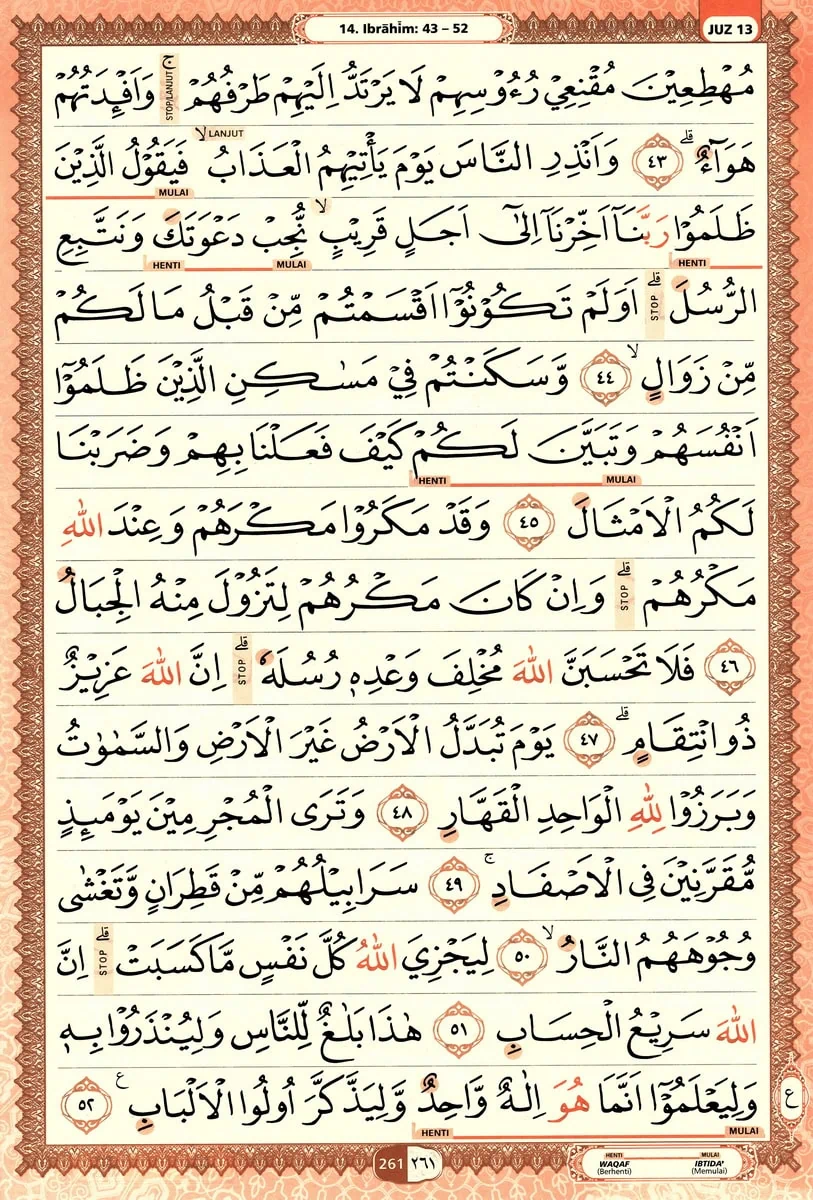 14. Ibrāhīm: 43 – 52
JUZ 13
مُهْطِعِيْنَ مُقْنِعِيْ رُءُوْسِهِمْ لَا يَرْتَدُّ اِلَيْهِمْ طَرْفُهُمْ ۚ STOP/LANJUT وَاَفْـِٕدَتُهُمْ
هَوَاۤءٌ ۗ ٤٣ وَاَنْذِرِ النَّاسَ يَوْمَ يَأْتِيْهِمُ الْعَذَابُ ۙ LANJUT فَيَقُوْلُ الَّذِيْنَ
MULAI
ظَلَمُوْا رَبَّنَآ اَخِّرْنَآ اِلٰٓى اَجَلٍ قَرِيْبٍ ۙ نُّجِبْ دَعْوَتَكَ وَنَتَّبِعِ
HENTI MULAI HENTI
الرُّسُلَ ۗ STOP اَوَلَمْ تَكُوْنُوْٓا اَقْسَمْتُمْ مِّنْ قَبْلُ مَا لَكُمْ
مِّنْ زَوَالٍ ۙ ٤٤ وَّسَكَنْتُمْ فِيْ مَسٰكِنِ الَّذِيْنَ ظَلَمُوْٓا
اَنْفُسَهُمْ وَتَبَيَّنَ لَكُمْ كَيْفَ فَعَلْنَا بِهِمْ وَضَرَبْنَا
MULAI HENTI
لَكُمُ الْاَمْثَالَ ٤٥ وَقَدْ مَكَرُوْا مَكْرَهُمْ وَعِنْدَ اللّٰهِ
مَكْرُهُمْ ۗ STOP وَاِنْ كَانَ مَكْرُهُمْ لِتَزُوْلَ مِنْهُ الْجِبَالُ
٤٦ فَلَا تَحْسَبَنَّ اللّٰهَ مُخْلِفَ وَعْدِهٖ رُسُلَهٗ ۗ STOP اِنَّ اللّٰهَ عَزِيْزٌ
ذُو انْتِقَامٍ ۗ ٤٧ يَوْمَ تُبَدَّلُ الْاَرْضُ غَيْرَ الْاَرْضِ وَالسَّمٰوٰتُ
وَبَرَزُوْا لِلّٰهِ الْوَاحِدِ الْقَهَّارِ ٤٨ وَتَرَى الْمُجْرِمِيْنَ يَوْمَىِٕذٍ
مُّقَرَّنِيْنَ فِى الْاَصْفَادِ ۚ ٤٩ سَرَابِيْلُهُمْ مِّنْ قَطِرَانٍ وَّتَغْشٰى
وُجُوْهَهُمُ النَّارُ ۙ ٥٠ لِيَجْزِيَ اللّٰهُ كُلَّ نَفْسٍ مَّا كَسَبَتْ ۗ STOP اِنَّ
اللّٰهَ سَرِيْعُ الْحِسَابِ ٥١ هٰذَا بَلٰغٌ لِّلنَّاسِ وَلِيُنْذَرُوْا بِهٖ
وَلِيَعْلَمُوْٓا اَنَّمَا هُوَ اِلٰهٌ وَّاحِدٌ وَّلِيَذَّكَّرَ اُولُوا الْاَلْبَابِ ع ٥٢
MULAI HENTI
ع
261 ٢٦١
HENTI MULAI
WAQAF IBTIDA'
(Berhenti) (Memulai)